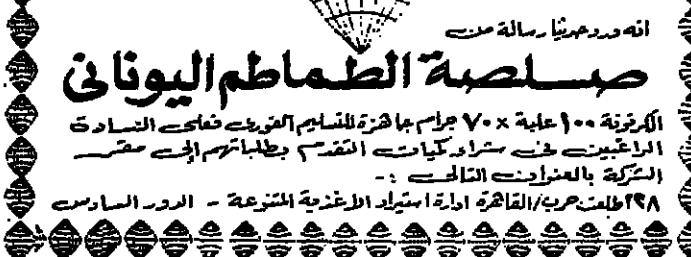 انه ورد حديثا رسالة من
صلصة الطماطم اليونانى
الكرتونة ١٠٠ علبة × ٧٠ جرام جاهزة للتسليم الفورى فعلى السادة
الراغبين فى شراء كميات التقدم بطلباتهم إلى مقر
الشركة بالعنوان التالى :-
٢٨ طلعت حرب/القاهرة ادارة استيراد الاغذية المتنوعة - الدور السادس